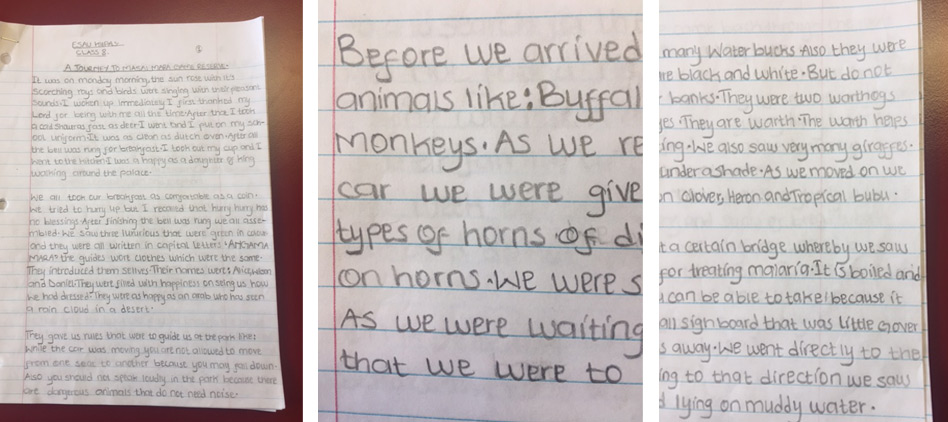 ESAU
CLASS 8.
A JOURNEY TO MASAI MARA GAME RESERVE.
It was on monday morning, the sun rose with it's
scorching rays and birds were singing with their pleasant
sounds. I woken up immediely I first thanked my
Lord for being with me all this time. After that I took
a cold shower as fast as deer. I went and I put on my sch-
ool uniform. It was as clean as dutch oven. After as
the bell was rung for breakfast. I took out my cup and I
went to the kitchen. I was a happy as a daughter of king
walking around the palace.
We all took our breakfast as comfortable as a coin.
We tried to hurry up but I recalled that hurry hurry has
no blessings. After finishing the bell was rung we all asse-
mbled. We saw three that were green in colour
and they were all written in capital letters.
MARA the guides wort clothes which were the same.
They introduced them selves. Their names were:
and Daniel. They were filed with happiness on seing us how
we had dressed. They were as happy as an arab who has seen
a rain cloud in a desert.
They gave us rules that were to guide us at the park like:
While the car was moving you are not allowed to move
from one seat to another because you may fall down.
Also you should not speak loudly in the park because there
are dangerous animals that do not need noise.
Before we arrived
animals like: Buffal
Monkeys. As we re
car we were give
types of horns of di
on horns. We were s
As we were waiting
that we were to
many Water bucks. Also they were
re black and white. But do not
banks. They were two warthogs
es. They are warth. The warth helps
ing. We also saw very many giraffes.
under a shade. As we moved on we
n clover, Heron and Tropical bubu.
t a certain bridge whereby we saw
for treating malaria. It is boiled and
can be able to take! because it
all sign board that was little cover
s away. We went directly to the
ing to that direction we saw
d lying on muddy water.